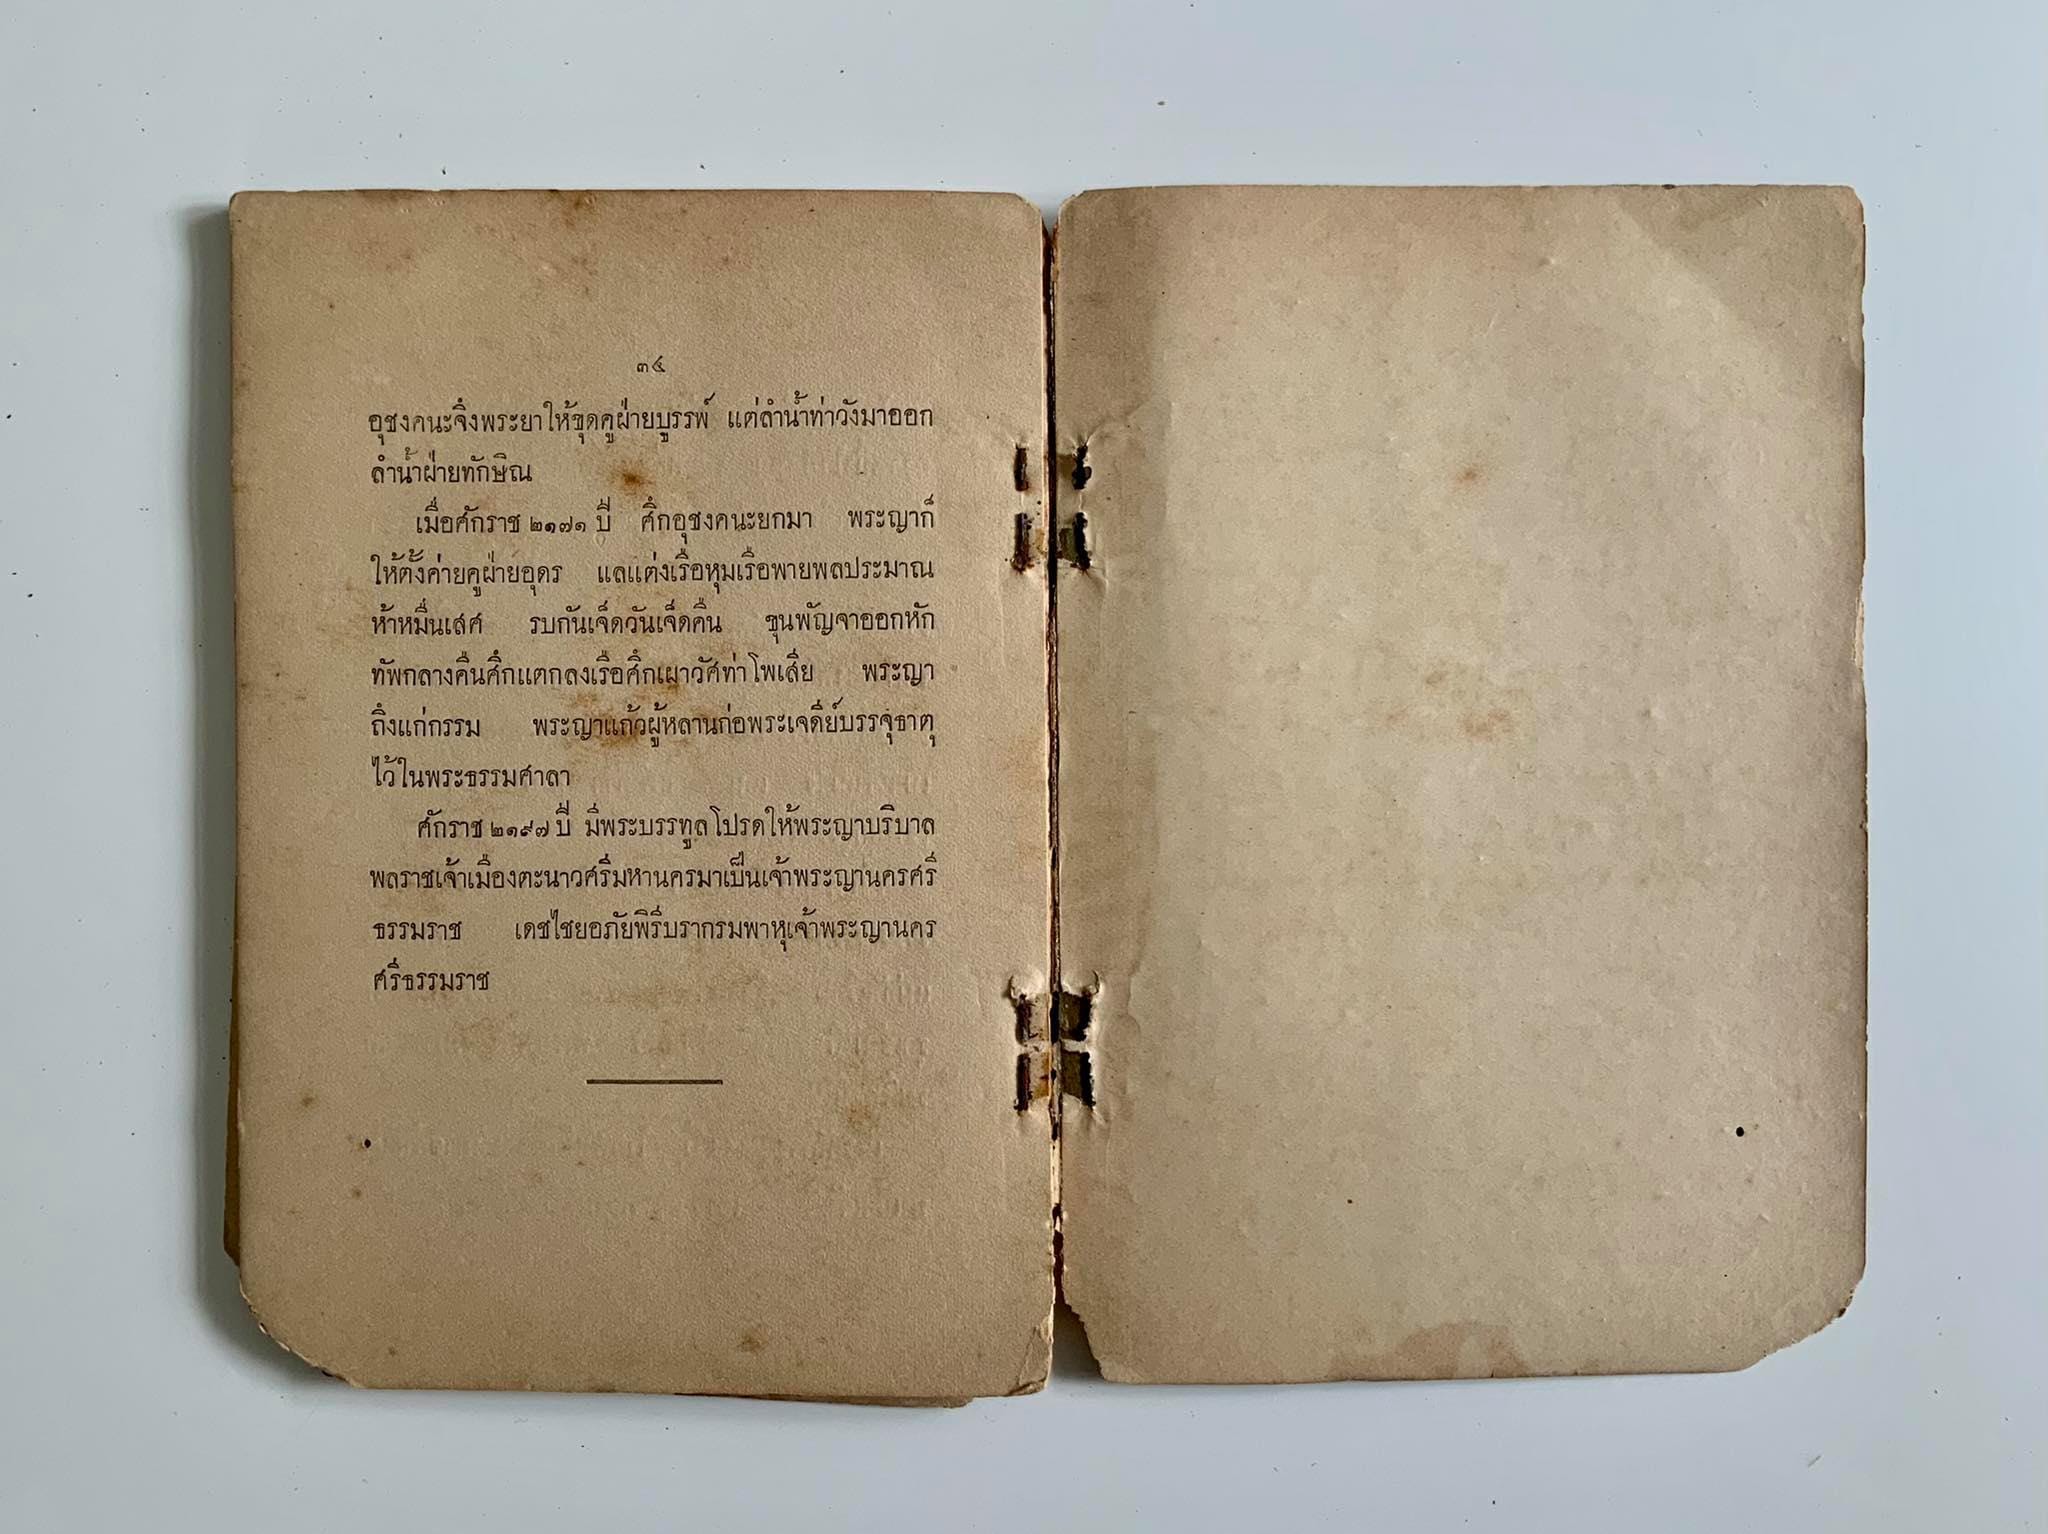 ๓๔
อุชงคนะจึงพระยาให้ขุดคูฝ่ายบูรรพ์ แต่ลำน้ำท่าวังมาออก
ลำน้ำฝ่ายทักษิณ
เมื่อศักราช ๒๑๗๑ ปี ศึกอุชงคนะยกมา พระญาก็
ให้ตั้งค่ายคูฝ่ายอุดร แลแต่งเรือหุมเรือพายพลประมาณ
ห้าหมื่นเสศ รบกันเจ็ดวันเจ็ดคืน ขุนพัญจาออกหัก
ทัพกลางคืนศึกแตกลงเรือศึกเผาวัศท่าโพเสีย พระญา
ถึงแก่กรรม พระญาแก้วผู้หลานก่อพระเจดีย์บรรจุธาตุ
ไว้ในพระธรรมศาลา
ศักราช ๒๑๙๗ ปี มีพระบรรทูลโปรดให้พระญาบริบาล
พลราชเจ้าเมืองตะนาวศรีมหานครมาเป็นเจ้าพระญานครศรี
ธรรมราช เดชไชยอภัยพิรีบรากรมพาหุเจ้าพระญานคร
ศรีธรรมราช